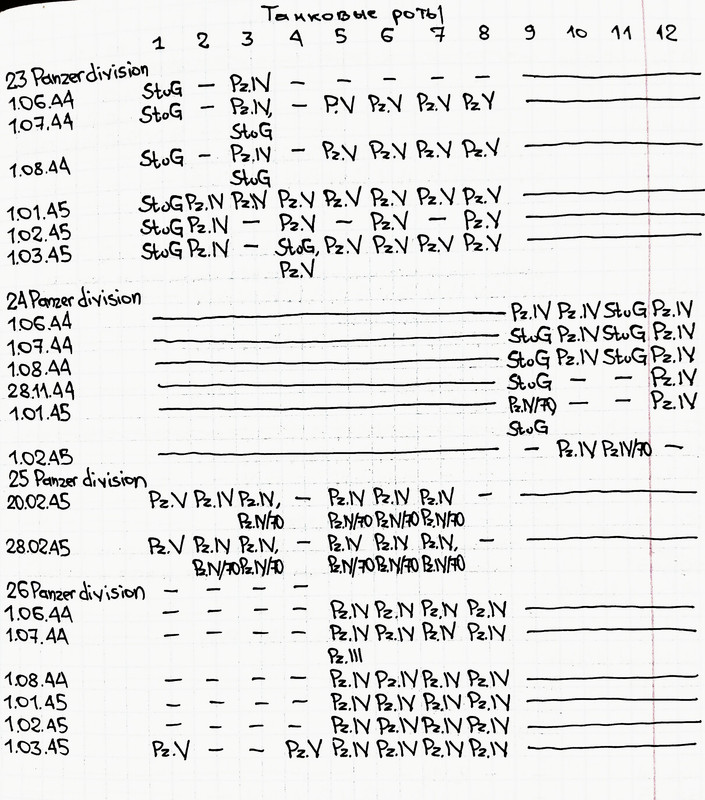 Танковые роты
1 2 3 4 5 6 7 8 9 10 11 12
23 Panzerdivision
1.06.44 StuG – Pz.IV – – – – –
1.07.44 StuG – Pz.IV, – P.V Pz.V Pz.V Pz.V
StuG
1.08.44 StuG – Pz.IV – Pz.V Pz.V Pz.V Pz.V
StuG
1.01.45 StuG Pz.IV Pz.IV Pz.V Pz.V Pz.V Pz.V Pz.V
1.02.45 StuG Pz.IV – Pz.V – Pz.V – Pz.V
1.03.45 StuG Pz.IV – StuG, Pz.V Pz.V Pz.V Pz.V
Pz.V
24 Panzerdivision
1.06.44 Pz.IV Pz.IV StuG Pz.IV
1.07.44 StuG Pz.IV StuG Pz.IV
1.08.44 StuG Pz.IV StuG Pz.IV
28.11.44 StuG – – Pz.IV
1.01.45 Pz.IV/70 – – Pz.IV
StuG
1.02.45 – Pz.IV Pz.IV/70 –
25 Panzerdivision
20.02.45 Pz.V Pz.IV Pz.IV, – Pz.IV Pz.IV Pz.IV –
Pz.IV/70 Pz.IV/70 Pz.IV/70 Pz.IV/70
28.02.45 Pz.V Pz.IV Pz.IV, – Pz.IV Pz.IV Pz.IV, –
Pz.IV/70 Pz.IV/70 Pz.IV/70 Pz.IV/70 Pz.IV/70
26 Panzerdivision – – – –
1.06.44 – – – – Pz.IV Pz.IV Pz.IV Pz.IV
1.07.44 – – – – Pz.IV Pz.IV Pz.IV Pz.IV
Pz.III
1.08.44 – – – – Pz.IV Pz.IV Pz.IV Pz.IV
1.01.45 – – – – Pz.IV Pz.IV Pz.IV Pz.IV
1.02.45 – – – – Pz.IV Pz.IV Pz.IV Pz.IV
1.03.45 Pz.V – – Pz.V Pz.IV Pz.IV Pz.IV Pz.IV